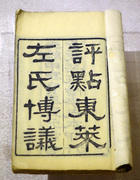 評點東萊
左氏博議